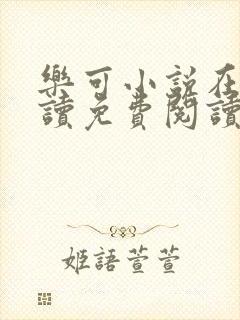 樂可小說在
讀免費閱讀
姬語萱萱